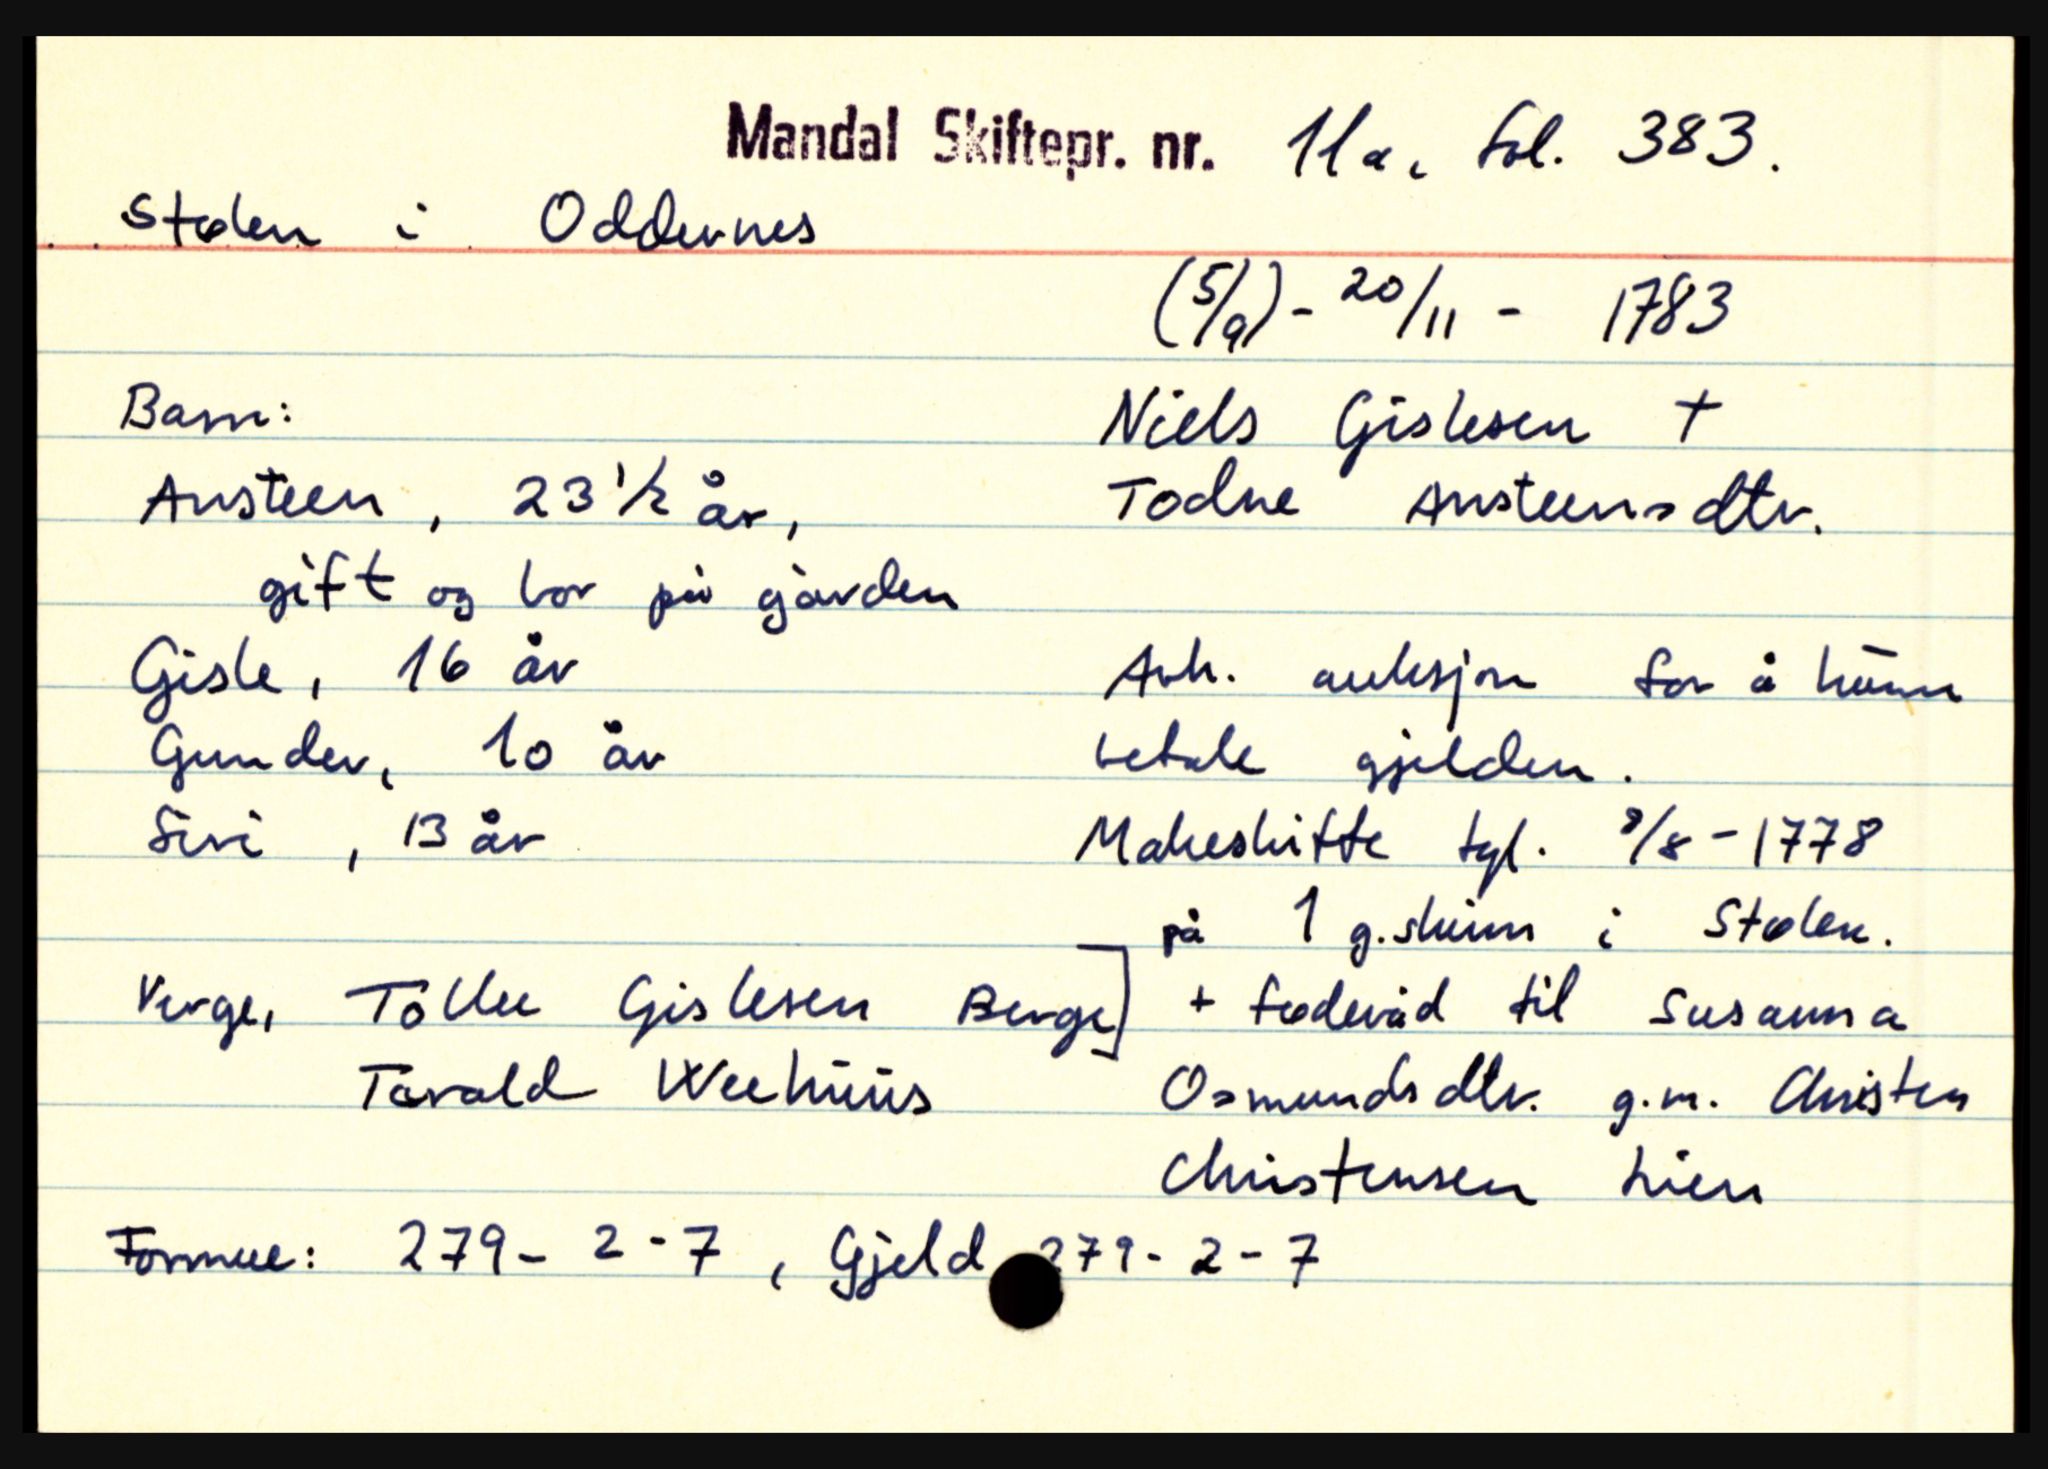 Mandal Skiftepr. nr. 11a, fol. 383.
Stølen i Oddernes
(5/9) - 20/11 - 1783
Barn:
Austeen, 23 1/2 år,
gift og bor på gården
Gisle, 16 år
Gunder, 10 år
Siri, 13 år
Verge, Tolleu Gislesen Berge
Tarald Weehuus
Niels Gislesen †
Todne Austeensdtr.
Avh. auksjon for å kunn
betale gjelden.
Makeskifte tgl. 8/8 - 1778
på 1 g.skinn i Stølen.
+ føderåd til Susanna
Osmundsdtr. g.m. Christen
Christensen Lien
Formue: 279 - 2 - 7, Gjeld 279 - 2 - 7